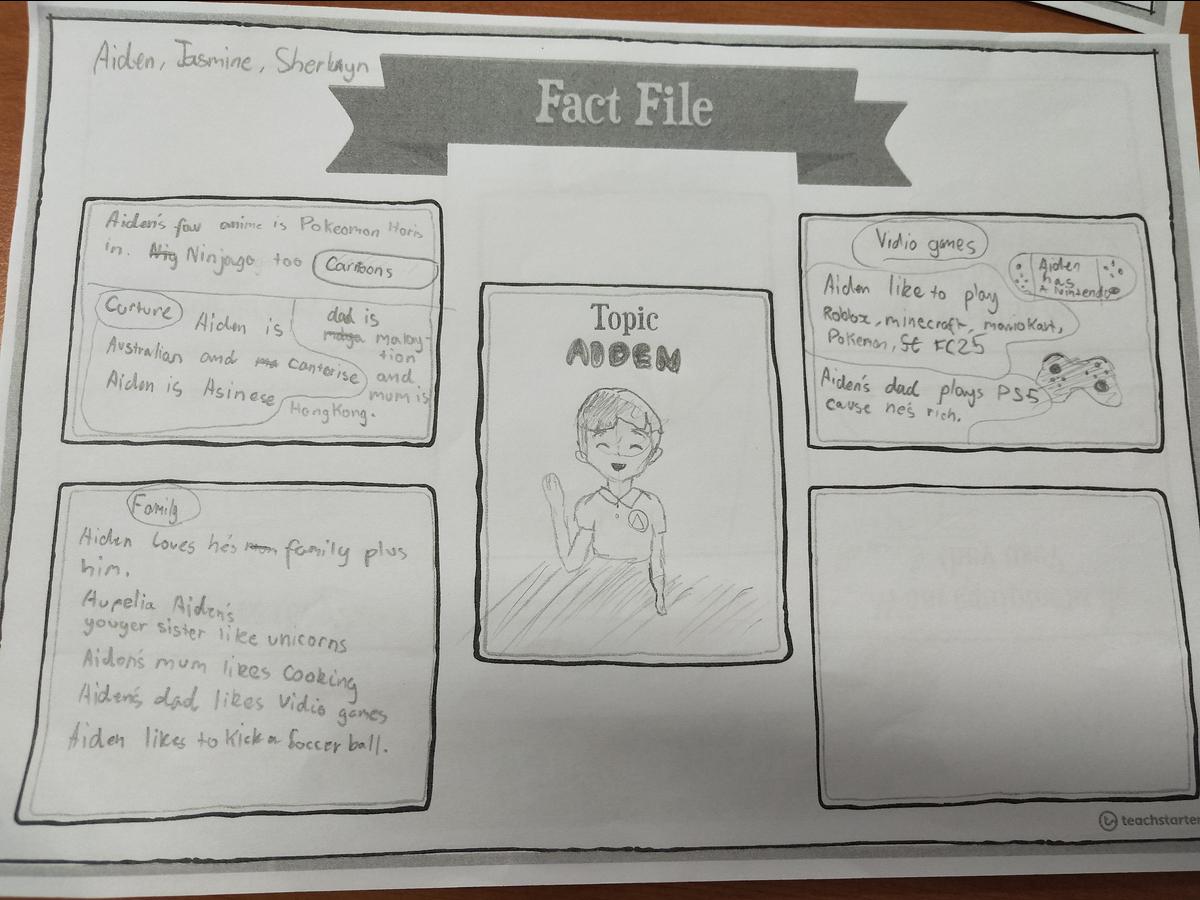 Aiden, Jasmine, Sherlyn
Fact File
Aiden's fav anime is Pokeomon Horis
in. Ninjago too
Cartoons
Curture
Aiden is
Australian and canterise
Aiden is Asinese
dad is
malay-
tion
and
mum is
HongKong.
Topic
AIDEN
Vidio games
Aiden
has
A Nintendo
Aiden like to play
Roblox, minecraft, mario Kart,
Pokemon, FC25
Aiden's dad plays PS5
cause he's rich.
Family
Aiden loves he's family plus
him.
Aurelia Aiden's
youger sister like unicorns
Aiden's mum likes Cooking
Aiden's dad likes Vidio games
Aiden likes to Kick a Soccer ball.
teachstarter